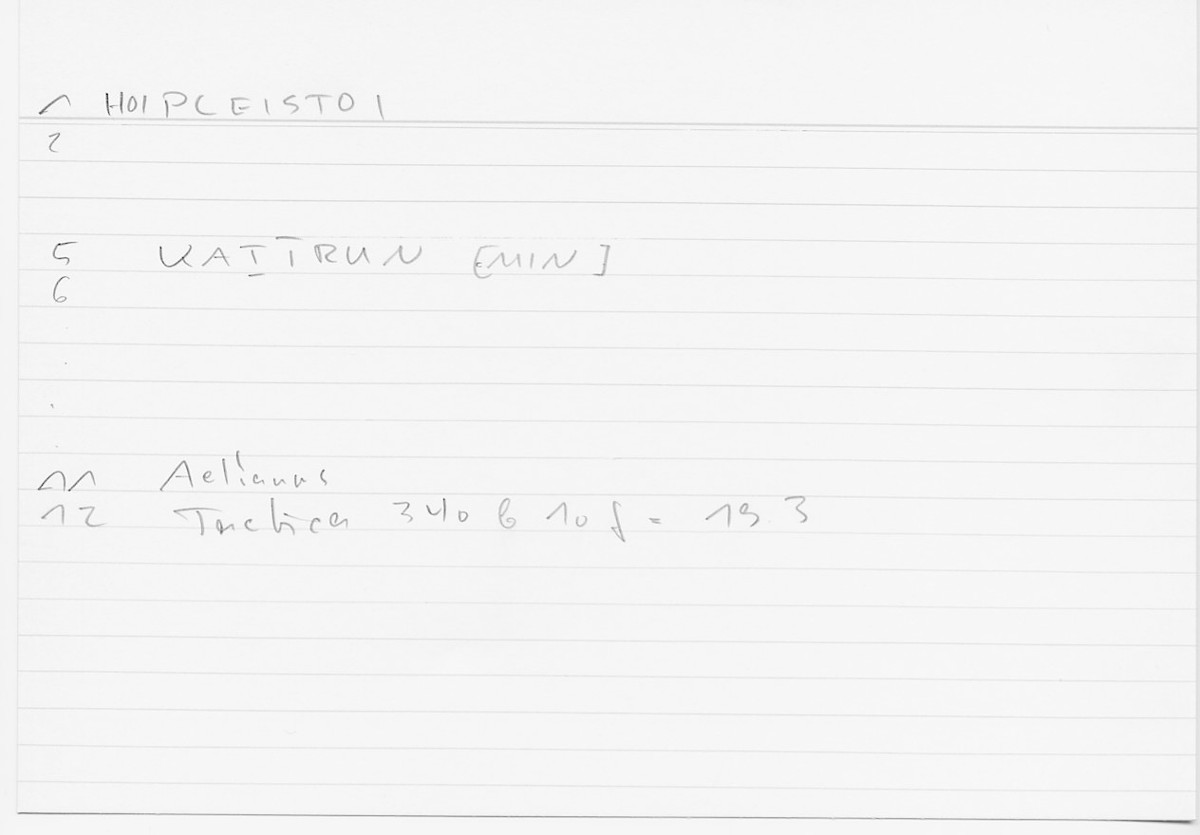 1 HOI PLEISTOI
2
5 KATTRUN [MIN]
6
.
.
.
11 Aelianus
12 Tactica 340 b 10 f = 19.3